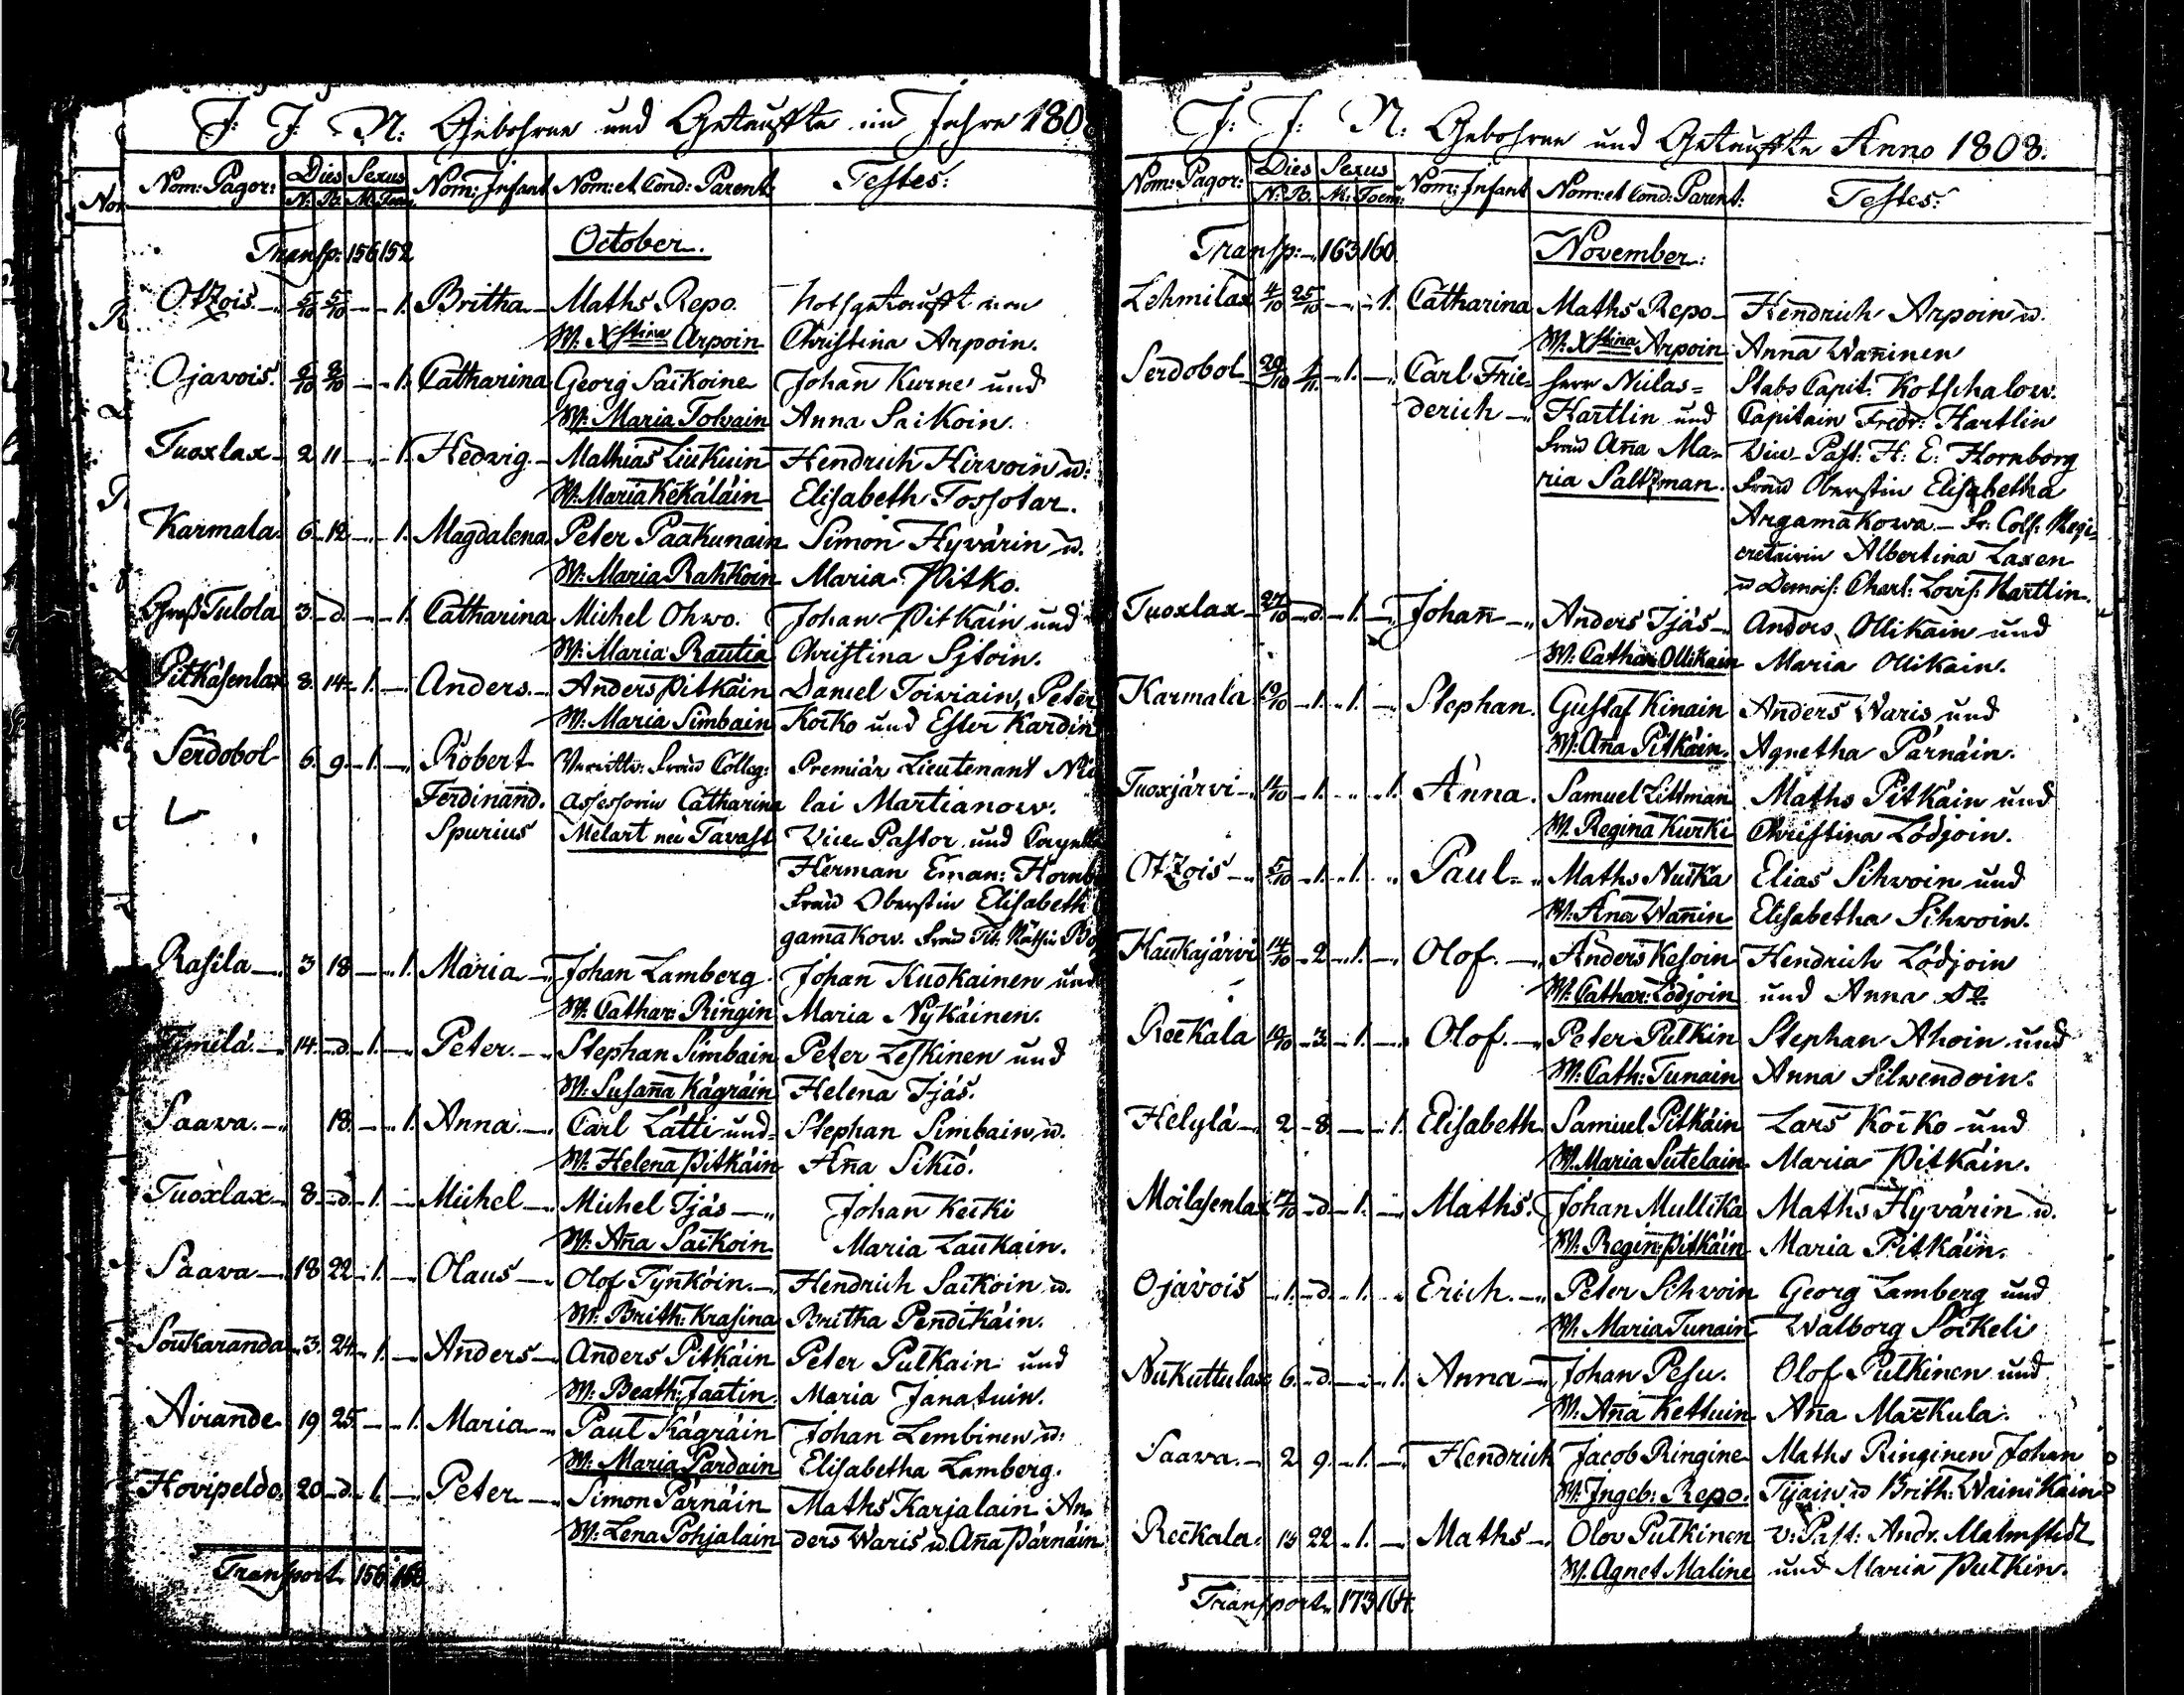 J. J. N. Gebohrne und Getauffte im Jahre 180
Nom: Pagor: Dies Sexus Nom: Infant Nom: et Cond: Parent: Testes:
N. B. M. Foem.
Transp: 156 152 October.
Otzois 5/10 5/10 1. Britha Maths Repo. Nothgetaufft von
W: Xstina Arpoin Christina Arpoin.
Ojavois. 1. Catharina Georg Saikoine Johan Kurne und
W: Maria Tolvain Anna Saikoin.
Tuoxlax 2 11 1. Hedwig. Mathias Liukuin Hendrich Hirvoin u:
W: Maria Kekäläin Elisabeth Tossotar.
Karmala 6. 12. 1. Magdalena Peter Paakunain Simon Hyvärin u.
W: Maria Rahkoin Maria Pitko.
Groß Tulola 3. d. 1. Catharina Michel Ohwo. Johan Pitkäin und
W: Maria Rautia Christina Sjtoin.
Pitkäsenlax 8. 14. 1. Anders. Anders Pitkäin Daniel Toiviain, Peter
W: Maria Simbain Koiko und Ester Kardin
Serdobol 6. 9. 1. Robert Frau Colleg: Premiär Lieutenant Nic
Ferdinand. Assessorin Catharina lai Martianow.
Spurius Melart neé Tavast Vice Pastor und
Herman Eman: Hornb
Frau Oberstin Elisabeth
gamakow. Frau Tit: Räthin
Rasila 3 18 1. Maria Johan Lamberg Johan Kuokainen und
W: Cathar: Ringin Maria Nykäinen.
14. d. 1. Peter. Stephan Simbain Peter Leskinen und
W: Susaña Kägräin Helena Tjäs.
Saava. 18. 1. Anna Carl Lätti und Stephan Simbain u.
W: Helena Pitkäin Aña Sikiö.
Tuoxlax 8. d. 1. Michel Michel Tjäs Johan Keiki
W: Aña Saikoin Maria Laukain.
Saava 18 22 1. Olaus Olof Tynköin. Hendrich Saikoin u.
W: Brith: Krasina Britha Pendikäin.
Soukaranda 3. 24. 1. Anders Anders Pitkäin Peter Pulkain und
W: Beath: Jaatin. Maria Janatuin.
Airande 19 25. 1. Maria Paul Kägräin Johan Lembinen u:
W: Maria Pardain Elisabetha Lamberg.
Hovipeldo. 20 d. 1. Peter Simon Pärnäin Maths Karjalain An-
W: Lena Pohjalain ders Waris u. Aña Pärnäin
Transport 156
J: J: N: Gebohrne und Getauffte Anno 1808.
Nom: Pagor: Dies Sexus Nom: Infant Nom: et Cond: Parent: Testes:
N: B. M: Foem:
Transp: 163 160 November:
Lehmilax 4/10 25/10 1. Catharina Maths Repo Hendrich Arpoin u.
W: Xstina Arpoin Anna Wañinen
Serdobol 1. Carl Frie- Herr Stabs Capit: Kotschalow.
derich Hartlin und Capitain Fredr: Hartlin
Frau Aña Ma- Vice Past: H: E: Hornborg
ria Saltzman. Frau Oberstin Elisabetha
Argamakowa Fr: Coll: Regi-
cretairin Albertina Laxen
u Demois: Charl: Lovis: Hartlin.
Tuoxlax 27/10 d. 1. Johañ Anders Tjäs Anders Ollikain und
W. Cathar: Ollikain Maria Ollikain.
Karmala 19/10 1. 1. Stephan. Gustaf Kinain Anders Waris und
W: Aña Pitkäin. Agnetha Pärnäin.
Tuoxjärvi 14/10 1. 1. Anna. Samuel Littman Maths Pitkäin und
W. Regina Kurki Christina Lödjoin.
Otzois 5/10 1. 1. Paul Maths Nuika Elias Sihvoin und
W: Ana Wañin Elisabetha Sihvoin.
Haukajärvi 14/10 2 1. Olof. Anders Kesoin Hendrich Lödjoin
W: Cathar: Lödjoin und Anna do
Reekala 19/10 3. 1. Olof. Peter Pulkin Stephan Ahoin und
W: Cath: Tunain Anna Silvendoin.
Helylä 2 8 1. Elisabeth Samuel Pitkäin Lars Koiko und
W. Maria Sutelain Maria Pitkäin.
Moilasenlax 17/10 d. 1. Maths. Johan Mullika Maths Hyvärin u.
W: Regin: Pitkäin Maria Pitkäin.
Ojavois 1. d. 1. Erich. Peter Sihvoin Georg Lamberg und
W. Maria Tunain Walborg Soikeli
Nukuttulax 6. d. 1. Anna Johan Pesu. Olof Pulkinen und
W: Aña Kettuin Aña Mazkula.
Saava. 2 9. 1. Hendrich Jacob Ringine Maths Ringinen Johan
W: Ingeb: Repo. Tijain u Brith: Wainikain
Reekala. 19 22 1. Maths Olov Pulkinen V: Past: Andr. Malmstedt
W. Agnet Maline und Maria Pulkin.
Transport 173 164.